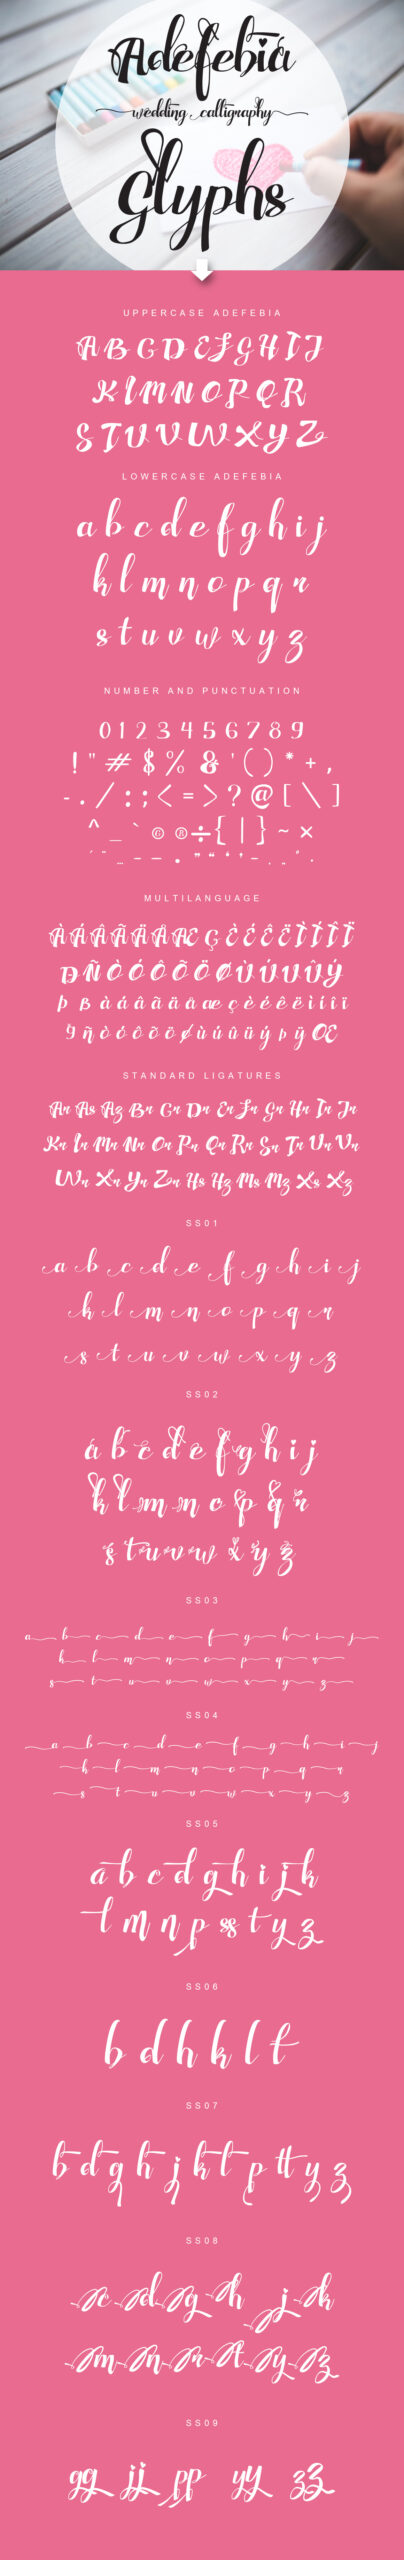 Adefebia
wedding calligraphy
Glyphs
UPPERCASE ADEFEBIA
A B C D E F G H I J
K L M N O P Q R
S T U V W X Y Z
LOWERCASE ADEFEBIA
a b c d e f g h i j
k l m n o p q r
s t u v w x y z
NUMBER AND PUNCTUATION
0 1 2 3 4 5 6 7 8 9
! " # $ % & ' ( ) * + ,
- . / : ; < = > ? @ [ \ ]
^ _ ` © ® ÷ { | } ~ ×
MULTILANGUAGE
À Á Â Ã Ä Å Æ Ç È É Ê Ë Ì Í Î Ï
Ð Ñ Ò Ó Ô Õ Ö Ø Ù Ú Û Ü Ý
Þ ß à á â ã ä å æ ç è é ê ë ì í î ï
ñ ò ó ô õ ö ø ù ú û ü ý þ ÿ Œ
STANDARD LIGATURES
An As Az Bn Cn Dn En Fn Gn Hn In Jn
Kn Ln Mn Nn On Pn Qn Rn Sn Tn Un Vn
Wn Xn Yn Zn Hs Hz Ms Mz Xs Xz
SS01
a b c d e f g h i j
k l m n o p q r
s t u v w x y z
SS02
a b c d e f g h i j
k l m n o p q r
s t u v w x y z
SS03
a b c d e f g h i j
k l m n o p q r
s t u v w x y z
SS04
a b c d e f g h i j
k l m n o p q r
s t u v w x y z
SS05
a b c d g h i j k
l m n p ss t y z
SS06
b d h k l t
SS07
b d g h j k l p tt y z
SS08
c d g h j k
m n r t y z
SS09
gg jj pp yy zz